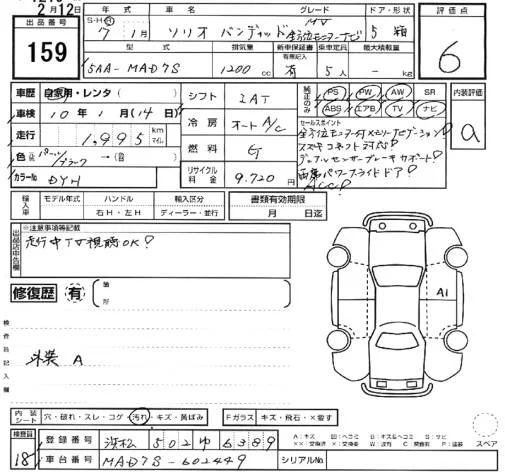 2月12日
出品番号 159
年式 S・H・R 7年 1月
車名 ソリオ バンディット
グレード MV 全方位モニターナビ
ドア・形状 5 箱
評価点 6
型式 5AA-MA37S
排気量 1200 cc
新車保証書 有無記入 有
乗車定員 5人
最大積載量 - kg
車歴 自家用・レンタ( )
車検 10年 1月(14日)
走行 1,995 km マイル
色 (替) パープル/ブラック → ( )
カラーNo DYH
シフト IAT
冷房 オートA/C
燃料 G
リサイクル料金 9,720 円
純正のみ PS PW AW SR
ABS エアB TV ナビ
内装評価 a
セールスポイント
全方位モニター付メモリーナビゲーション!
スズキコネクト対応!
デュアルセンサーブレーキサポート!
両側パワースライドドア!
ACC!
輸入車 モデル年式 年 ハンドル 右H・左H 輸入区分 ディーラー・並行
書類有効期限 月 日迄
出品店申告欄 ※注意事項等記載
走行中TV視聴OK!
修復歴 有 箇所
A1
検査員記入欄
外装 A
内装シート 穴・破れ・スレ・コゲ・汚れ・キズ・黄ばみ
Fガラス キズ・飛石・X要す
スペア
検査員 18
登録番号 浜松 502 ゆ 6389
車台番号 MA37S-602449
シリアルNo.